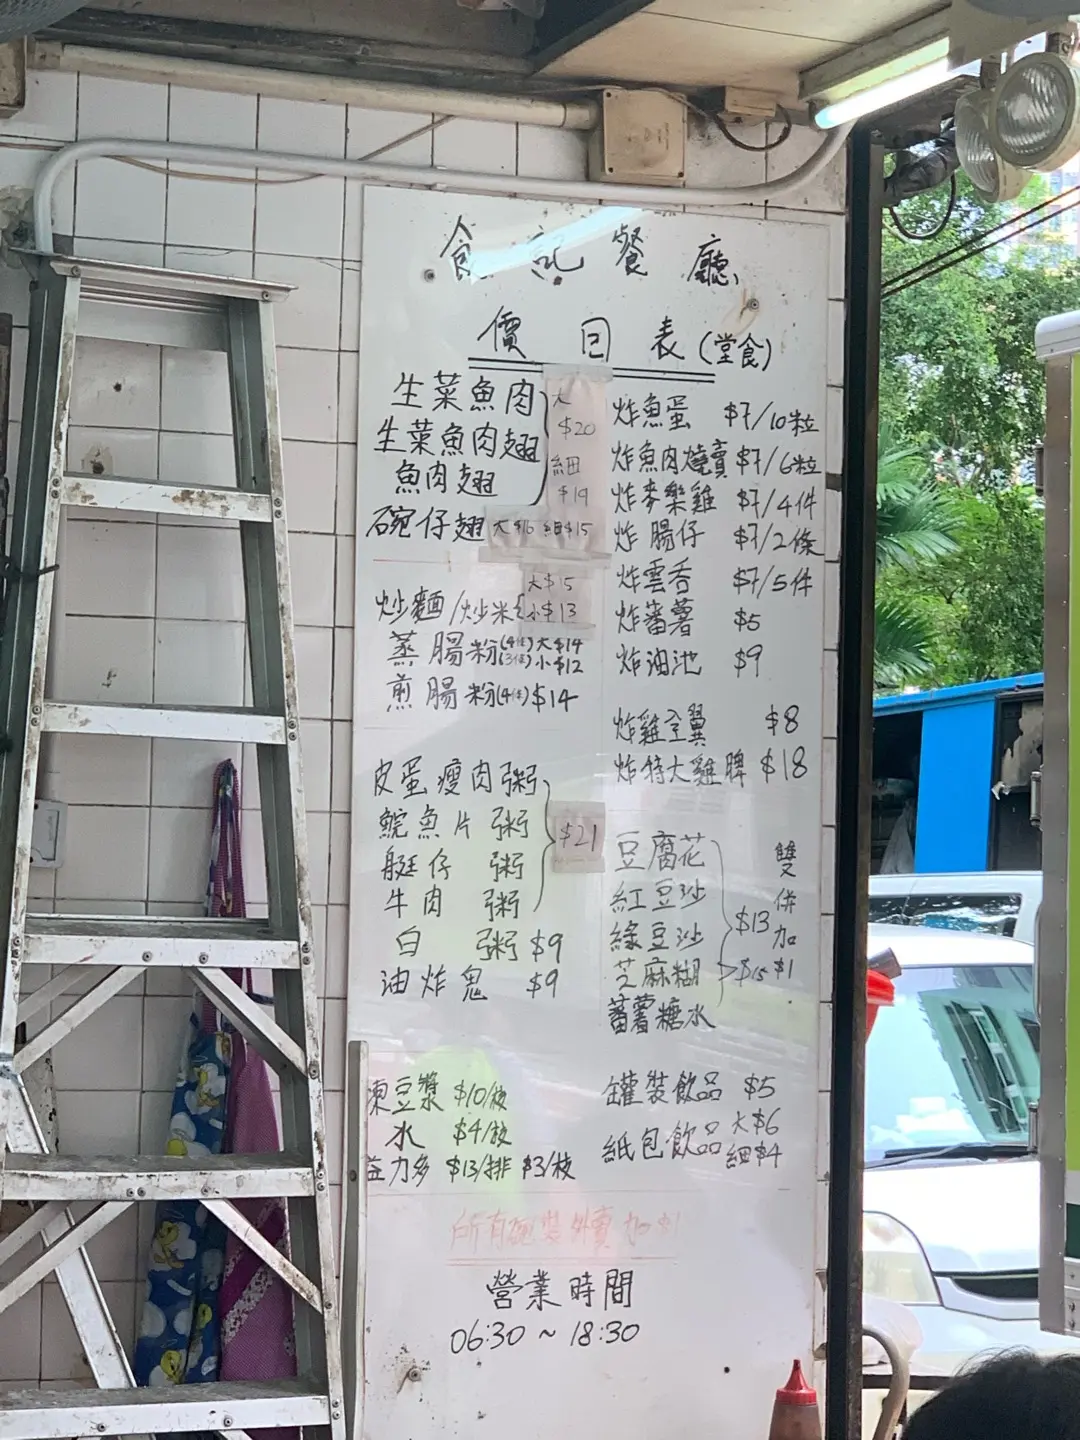 食記餐廳
價目表(堂食)
生菜魚肉
生菜魚肉翅
魚肉翅
大
$20
細
$19
碗仔翅 大$16 細$15
炒麵/炒米 大$15
小$13
蒸腸粉 (4條)大$14
(3條)小$12
煎腸粉(4條) $14
皮蛋瘦肉粥
鯇魚片粥
艇仔粥
牛肉粥
$21
白粥 $9
油炸鬼 $9
凍豆漿 $10/枝
水 $4/枝
益力多 $13/排 $3/枝
炸魚蛋 $7/10粒
炸魚肉燒賣 $7/6粒
炸麥樂雞 $7/4件
炸腸仔 $7/2條
炸雲吞 $7/5件
炸蕃薯 $5
炸油池 $9
炸雞全翼 $8
炸特大雞脾 $18
豆腐花
紅豆沙
綠豆沙
芝麻糊
蕃薯糖水
$13
$15
雙併加$1
罐裝飲品 $5
紙包飲品 大$6
細$4
所有碗裝外賣加$1
營業時間
06:30 ~ 18:30